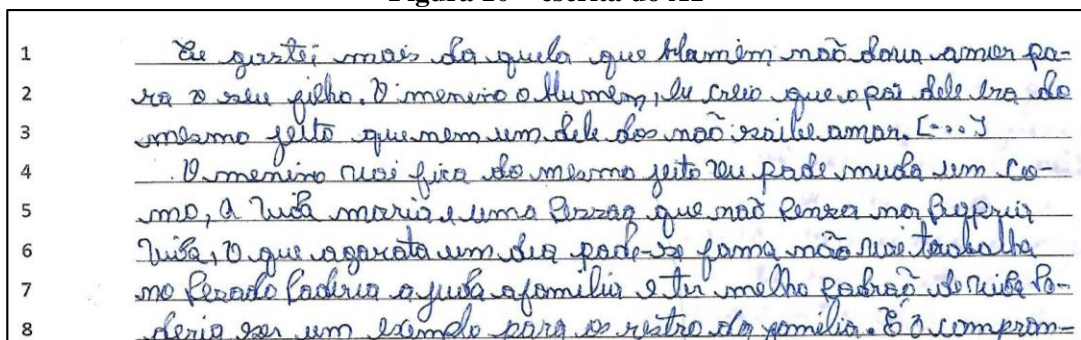 1 Eu gostei mais da quela que Mamem não dava amor pa-
2 ra o seu filho. O menino o Humem, eu creio que o pai dele era do
3 mesmo jeito que nem um dele dos não saibe amar. [...]
4 O menino vai fica do mesmo jeito ou pode muda um co-
5 mo, a vida maria e uma Perzaa que não Penza na Propria
6 vida, O que a garota um dia pode-se fama não vai trabalha
7 no Pezado Paderia a juda a familia e ter melho padrão de vida Po-
8 deria ser um exemplo para os restro da familia. E o compron-